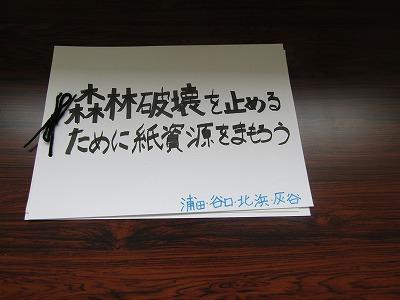 森林破壊を止める
ために紙資源をまもろう
浦田・谷口・北浜・灰谷